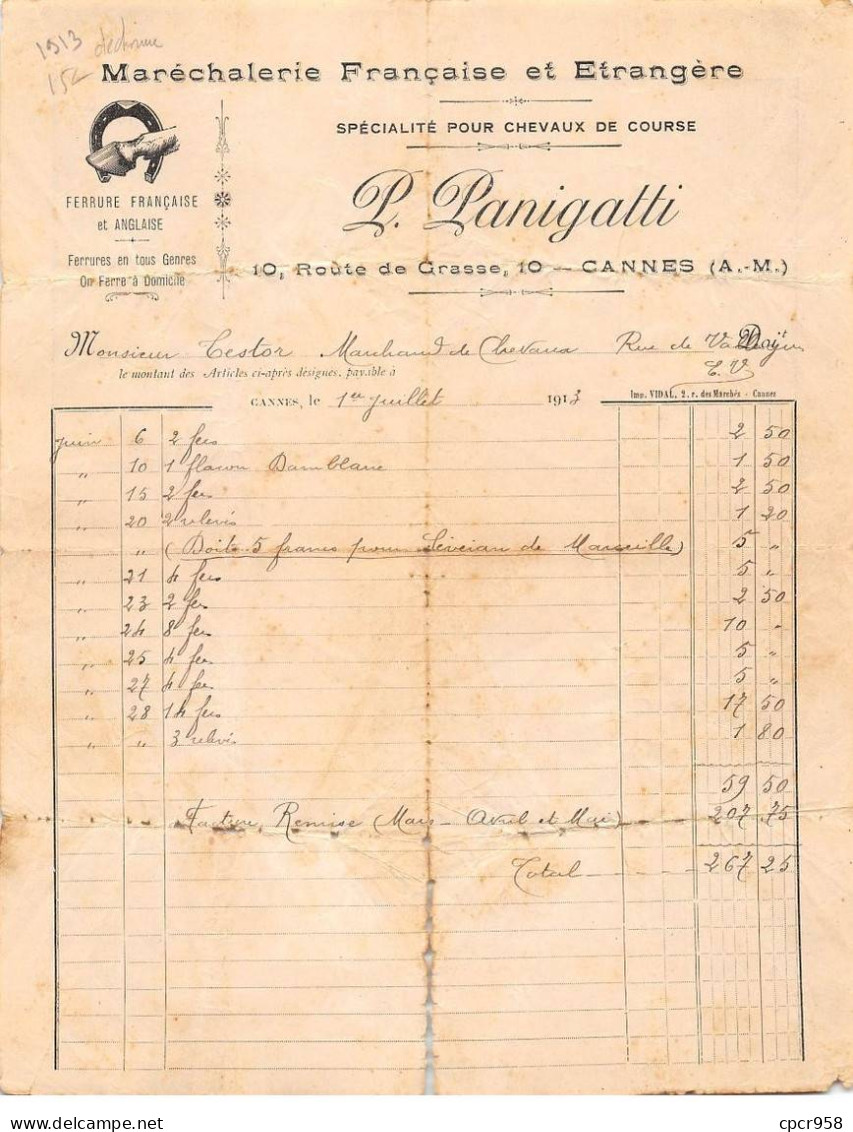 1913
15
Maréchalerie Française et Etrangère
SPÉCIALITÉ POUR CHEVAUX DE COURSE
FERRURE FRANÇAISE
et ANGLAISE
Ferrures en tous Genres
On Ferre à Domicile
P. Panigatti
10, Route de Grasse, 10 — CANNES (A.-M.)
Monsieur Testor Marchand de Chevaux Rue de Doit
E. V.
le montant des Articles ci-après désignés, payable à
CANNES, le 1er juillet 1913
Imp. VIDAL, 2, r. des Marchés - Cannes
juin 6 2 fers 2 50
" 10 1 flacon Damblanc 1 50
" 15 2 fers 2 50
" 20 2 relevés 1 20
" (Doits 5 francs pour de Marseille) 5 "
" 21 4 fers 5 "
" 23 2 fers 2 50
" 24 8 fers 10 "
" 25 4 fers 5 "
" 27 4 fers 5 "
" 28 14 fers 17 50
" " 3 relevés 1 80
59 50
Facture Remise (Mars - Avril et Mai) 207.75
Total 267 25
cpcr958